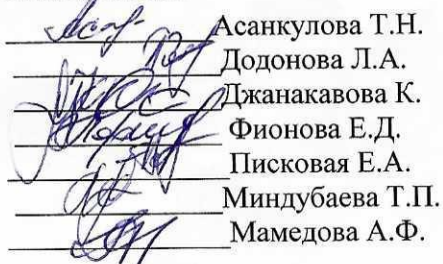 Асанкулова Т.Н.
Додонова Л.А.
Джанакавова К.
Фионова Е.Д.
Писковая Е.А.
Миндубаева Т.П.
Мамедова А.Ф.